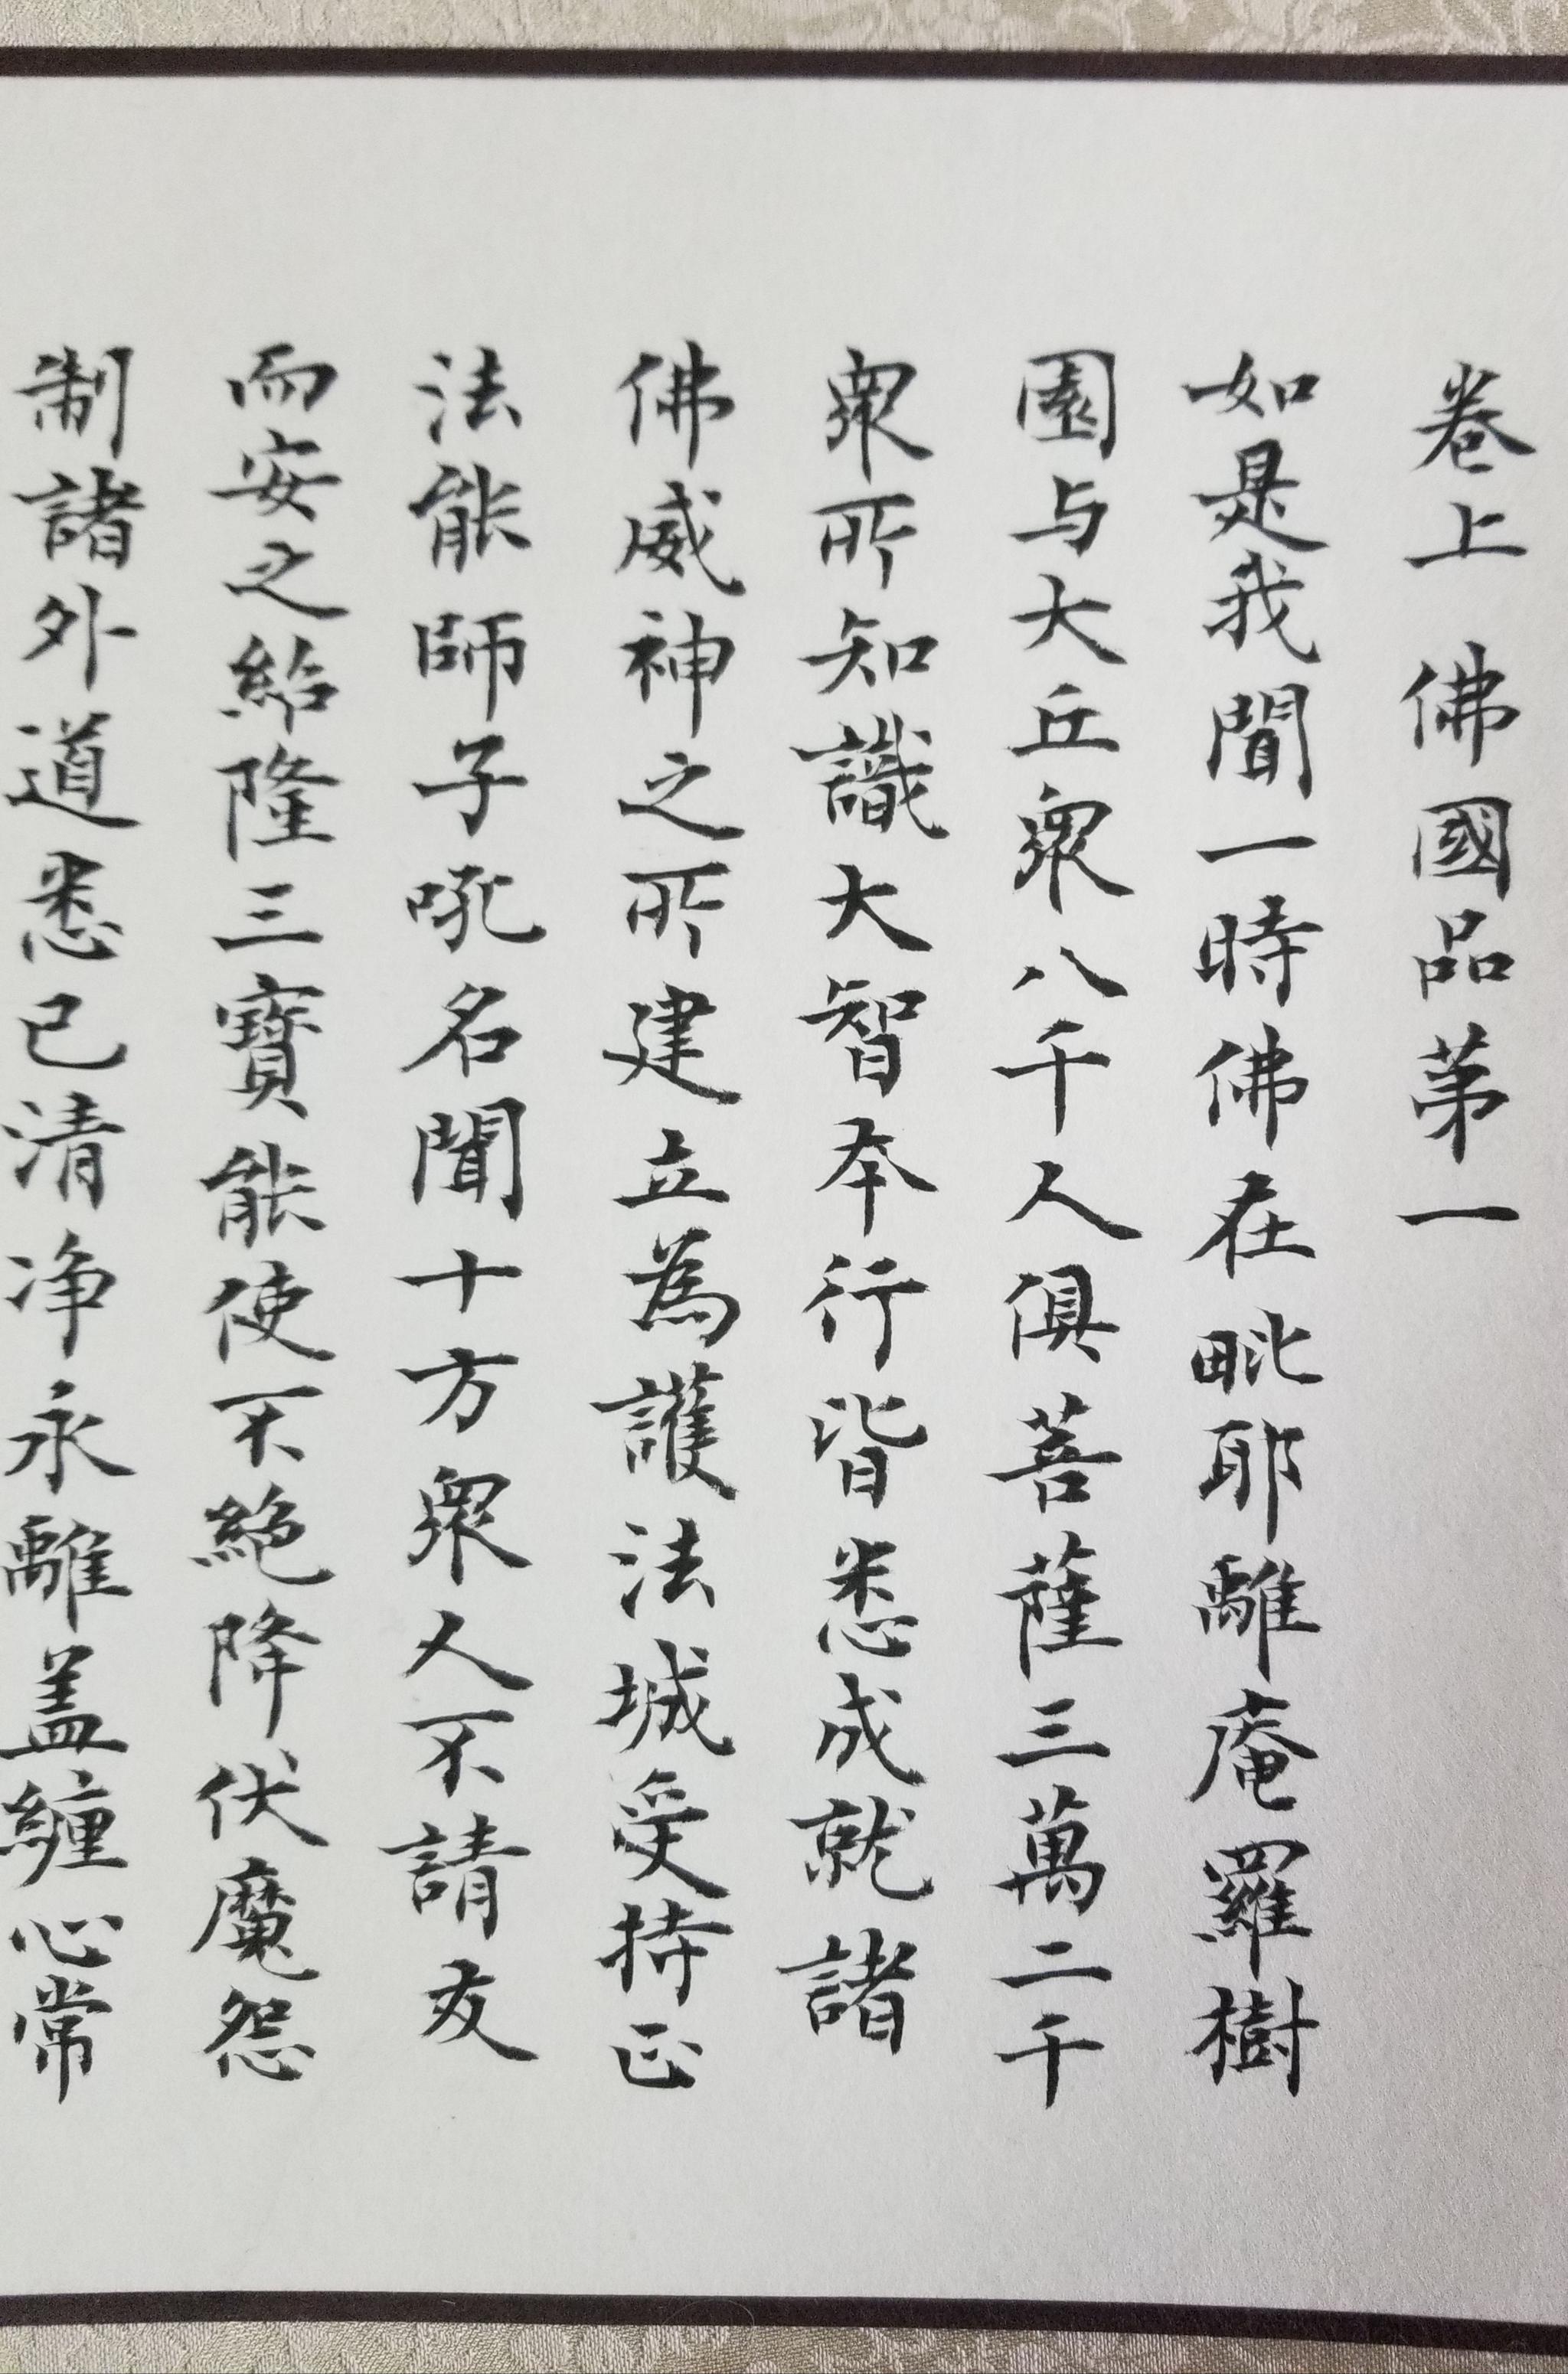 卷上 佛國品第一
如是我聞一時佛在毗耶離庵羅樹
園与大丘眾八千人俱菩薩三萬二千
眾所知識大智本行皆悉成就諸
佛威神之所建立為護法城受持正
法能師子吼名聞十方眾人不請友
而安之紹隆三寶能使不絕降伏魔怨
制諸外道悉已清淨永離盖纏心常